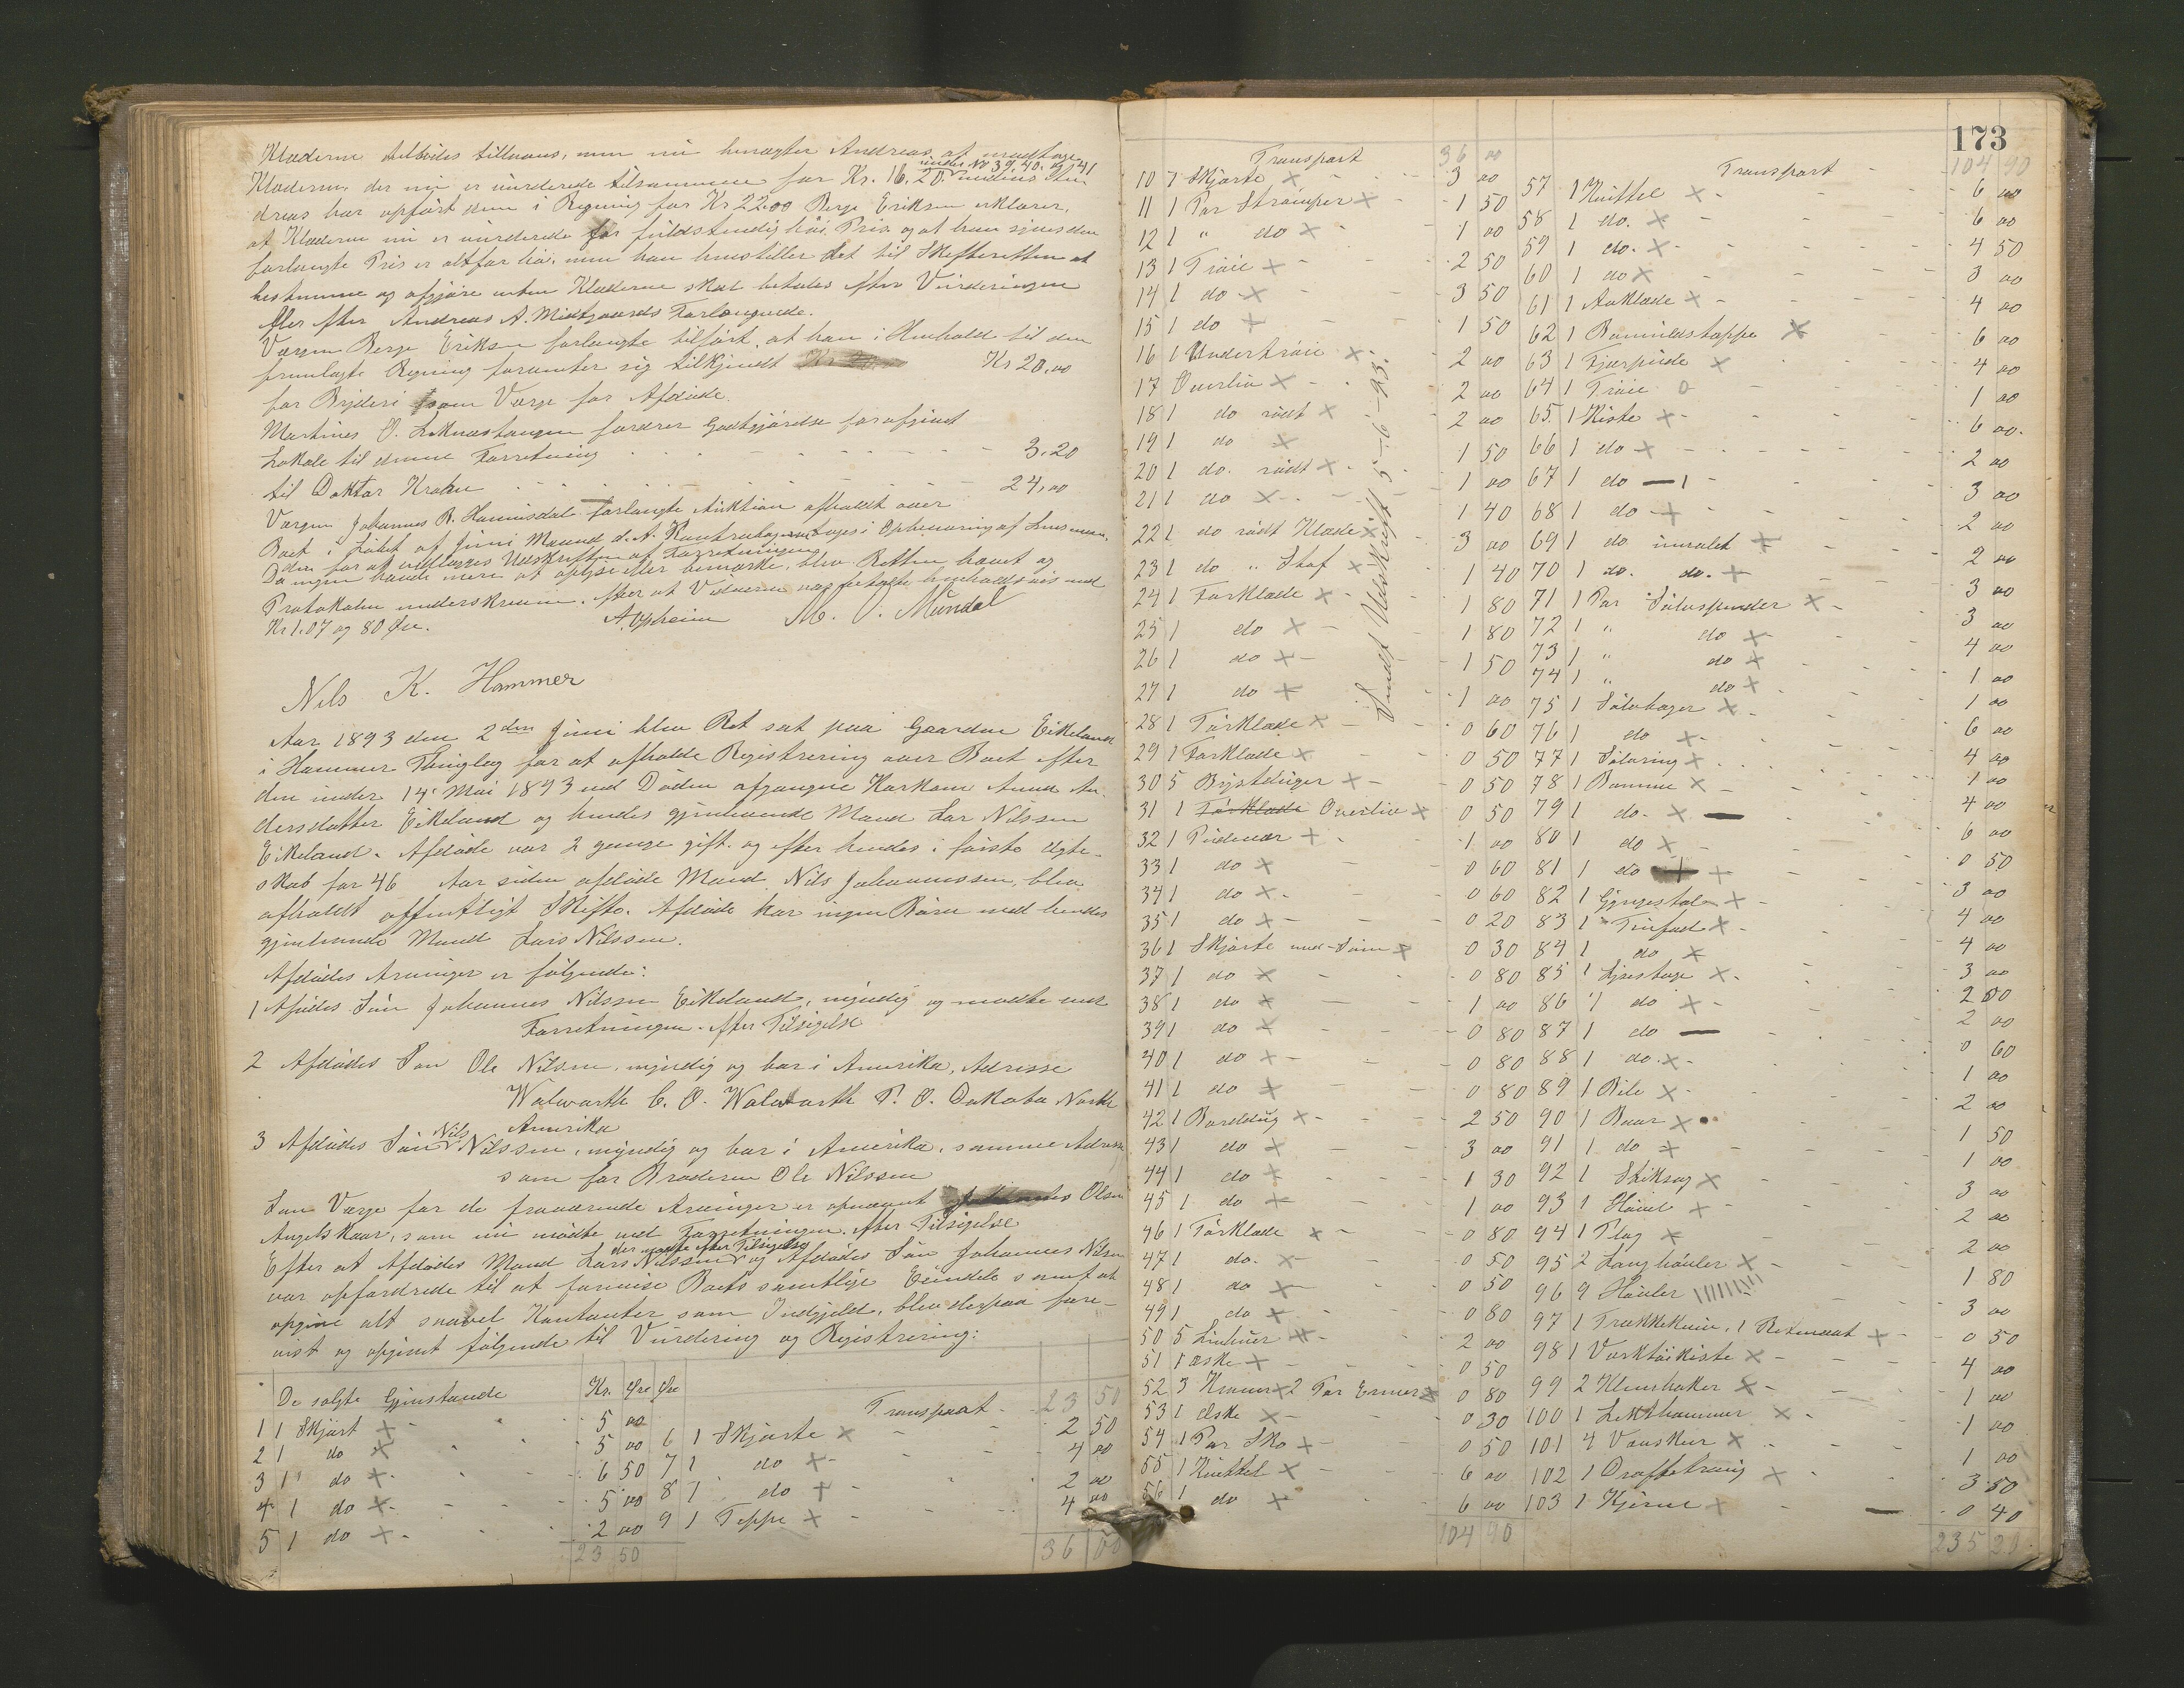 Klæderne tilbødes tilluans, men nu henægter Andreas at modtage
under No 39, 40 og 41
Klæderne der nu er vurderede tilsammen for Kr. 16.20
dreas har opført dem i Regning for Kr 22.00 Berge Eriksen erklærer,
at Klæderne nu er vurderede for fuldstændig høi Pris og at han synes den
forlangte Pris er altfor høi, men han henstiller det til Skifteretten at
bestemme og afgjøre enten Klæderne skal betales efter Vurderingen
eller efter Andreas A. Midtgaards Forlangende.
Værgen Berge Eriksen forlangte tilført, at han i Henhold til den
fremlagte Regning forventer sig tilkjendt Kr 20,00
for Bryderi som Værge for Afdøde.
Martines O. fordrer Godtgjørelse for afgivet
Lokale til denne Forretning 3.20
til Doktor Krohn 24,00
Værgen Johannes R. Hannisdal forlangte Auktion afholdt over
Boet i Løbet af Juni Maaned d. A. tages i Opbevaring af Lensman-
den for at vedlægges Udskriften af Forretningen
Da ingen havde mere at oplyse eller bemærke, blev Retten hævet og
Protokolen underskreven, efter at Vidnerne var betalte henholdsvis med
Kr 1.07 og 80 Øre.
A Opheim M. O. Mundal
Nils K. Hammer
Aar 1893 den 2den Juni blev Ret sat paa Gaarden Eikeland
i Hammer Thinglag for at afholde Registrering over Boet efter
den under 14 Mai 1893 ved Døden afgangne Harkone Anna An-
dersdatter Eikeland og hendes gjenlevende Mand Lar Nilssen
Eikeland. Afdøde var 2 gange gift og efter hendes i første Ægte-
skab for 46 Aar siden afdøde Mand Nils Johannessen, blev
afholdt offentligt Skifte. Afdøde har ingen Børn med hendes
gjenlevende Mand Lars Nilssen.
Afdødes Arvinger er følgende:
1 Afdødes Søn Johannes Nilssen Eikeland, myndig og mødte ved
Forretningen efter Tilsigelse
2 Afdødes Søn Ole Nilssen, myndig og bor i Amerika, Adresse
Walworth C. O. Walworth P. O. Dakota North
Amerika
3 Afdødes Søn Nils Nilssen, myndig og bor i Amerika, samme Adresse
som for Broderen Ole Nilssen
Som Værge for de fraværende Arvinger er opnævnt Olsen
Angelskaar, som nu mødte ved Forretningen efter Tilsigelse
der mødte efter Tilsigelse
Efter at Afdødes Mand Lars Nilssen og Afdødes Søn Johannes Nilsen
var opfordrede til at forevise Boets samtlige Eiendele samt at
opgive alt saavel Kontanter som Indgjeld, blev derpaa fore-
vist og opgivet følgende til Vurdering og Registrering:
De solgte Gjenstande Kr. Øre Øre
1 1 Skjørt × 5 00
2 1 do × 5 00
3 1 do × 6 50
4 1 do × 5 00
5 1 do × 2 00
23 50
Transport 23 50
6 1 Skjørte × 2 50
7 1 do × 4 00
8 1 do × 2 00
9 1 Teppe × 4 00
36 00
173
Transport 36 00
10 1 Skjørte × 3 00
11 1 Par Strømper × 1 50
12 1 " do × 1 00
13 1 Trøie × 2 50
14 1 do × 3 50
15 1 do × 1 50
16 1 Undertrøie × 2 00
17 Overliv × 2 00
18 1 do rødt × 2 00
19 1 do × 1 50
20 1 do. rødt × 1 00
21 1 do × 1 40
22 1 do rødt Klæde × 3 00
23 1 do " Stof × 1 40
24 1 Forklæde × 1 80
25 1 do × 1 80
26 1 do × 1 50
27 1 do × 1 00
28 1 Tørklæde × 0 60
29 1 Forklæde × 0 50
30 5 Brystduger × 0 50
31 1 Tørklæde Overliv × 0 50
32 1 Pudevar × 1 00
33 1 do × 0 60
34 1 do × 0 60
35 1 do × 0 20
36 1 Skjorte × 0 30
37 1 do × 0 80
38 1 do × 1 00
39 1 do × 0 80
40 1 do × 0 80
41 1 do × 0 80
42 1 Borddug × 2 50
43 1 do × 3 00
44 1 do × 1 30
45 1 do × 1 00
46 1 Tørklæde × 0 80
47 1 do. × 0 50
48 1 do × 0 50
49 1 do × 0 80
50 5 Linhuer × 2 00
51 1 Æske × 0 50
52 3 × 2 Par Ermer × 0 80
53 1 Æske × 0 30
54 1 Par Sko × 0 50
55 1 Kvittel × 6 00
56 1 do × 6 00
104 90
Sendt Udskrift 5-6-93.
Transport 104 90
57 1 Kvittel × 6 00
58 1 do. × 6 00
59 1 do. × 4 50
60 1 do × 3 00
61 1 Aaklæde × 4 00
62 1 Bomuldstæppe × 6 00
63 1 Fjærpude × 4 00
64 1 Trøie 0 1 00
65 1 Kiste × 6 00.
66 1 do × 2 00
67 1 do — 3 00
68 1 do × 2 00
69 1 do umalet × 2 00
70 1 do. do. × 3 00
71 1 Par Sølvspender × 3 00
72 1 " do × 4 00
73 1 " do × 1 00
74 1 " do × 1 00
75 1 Sølvbæger × 6 00
76 1 do × 4 00
77 1 Sølvring × 1 00
78 1 Bomme × 4 00
79 1 do. × 6 00
80 1 do × 0 50
81 1 do × 3 00
82 1 Gyngestol × 4 00
83 1 Tinfad × 4 00
84 1 do × 3 00
85 1 Lysestage × 2 00
86 1 do × 2 00
87 1 do — 0 60
88 1 do. × 1 00
89 1 Bile × 2 00
90 1 Baar × 1 50
91 1 do × 1 00
92 1 Stiksag × 3 00
93 1 Høvel × 2 00
94 1 Plog × 2 00
95 2 Langhøvler × 1 80
96 9 Høvler 3 00
97 1 Trækkekniv, 1 × 0 50
98 1 Værktøikiste × 4 00
99 2 × 1 00
100 1 Lekthammer × 1 00
101 4 × 1 00
102 1 × 3 50
103 1 Kjerne × 0 40
235 20